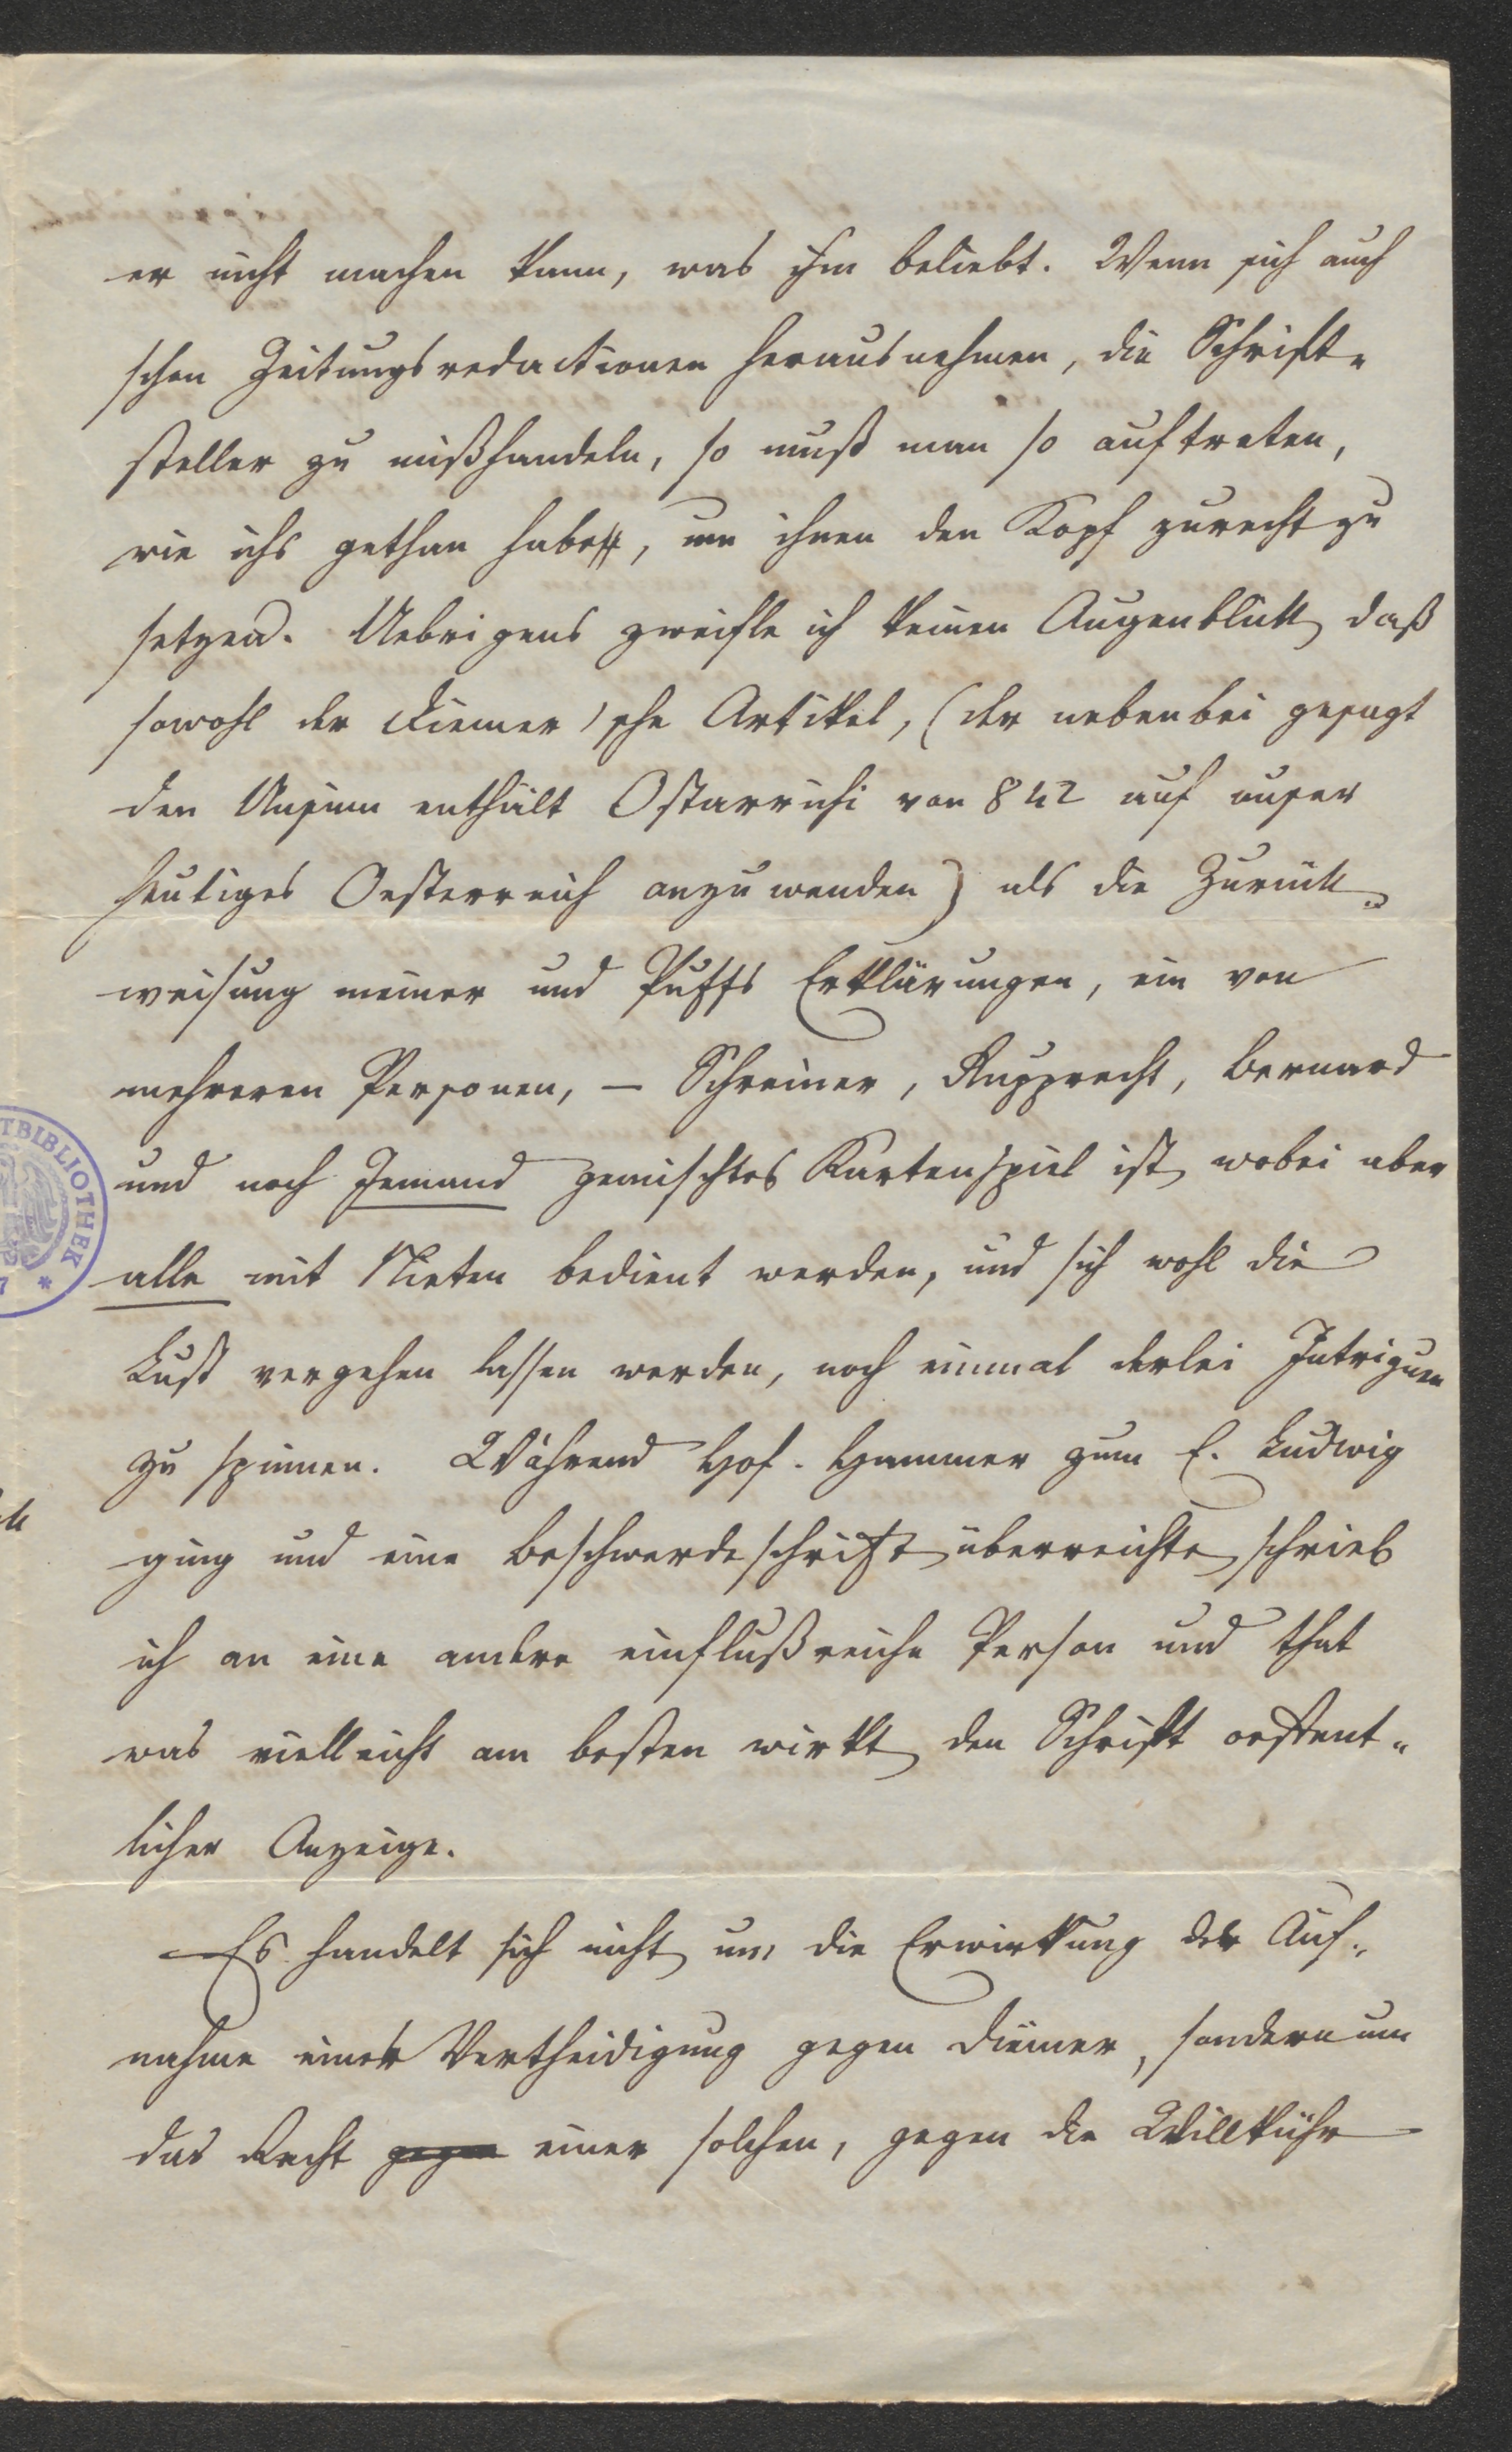 er nicht machen kann, was ihm beliebt. Wenn sich auch
schon Zeitungsredactionen herausnehmen, die Schrift-
steller zu mißhandeln, so muß man so auftreten,
wie ichs gethan habe, um ihnen den Kopf zurecht zu
setzen. Uebrigens zweifle ich keinen Augenblick, daß
sowohl der Diemer'sche Artikel, (der nebenbei gesagt
den Unsinn enthält Ostarrichi von 842 auf unser
heutiges Oesterreich anzuwenden) als die Zurück-
weisung meiner und Puffs Erklärungen, ein von
mehreren Personen, – Schreiner, Rupprecht, Bernard
und noch Jemand gemischtes Kartenspiel ist, wobei aber
alle mit Nieten bedient werden, und sich wohl die
Lust vergehen lassen werden, noch einmal derlei Intriguen
zu spinnen. Während Hof. Hammer zum E. Ludwig
ging und eine Beschwerdeschrift überreichte, schrieb
ich an eine andere einflußreiche Person und that
was vielleicht am besten wirkt, den Schritt oeffent-
licher Anzeige.
Es handelt sich nicht um die Erwirkung der Auf-
nahme einer Vertheidigung gegen Diemer, sondern um
das Recht gegen einer solchen, gegen die Willkühr
TBIBLIOTHEK
7 *